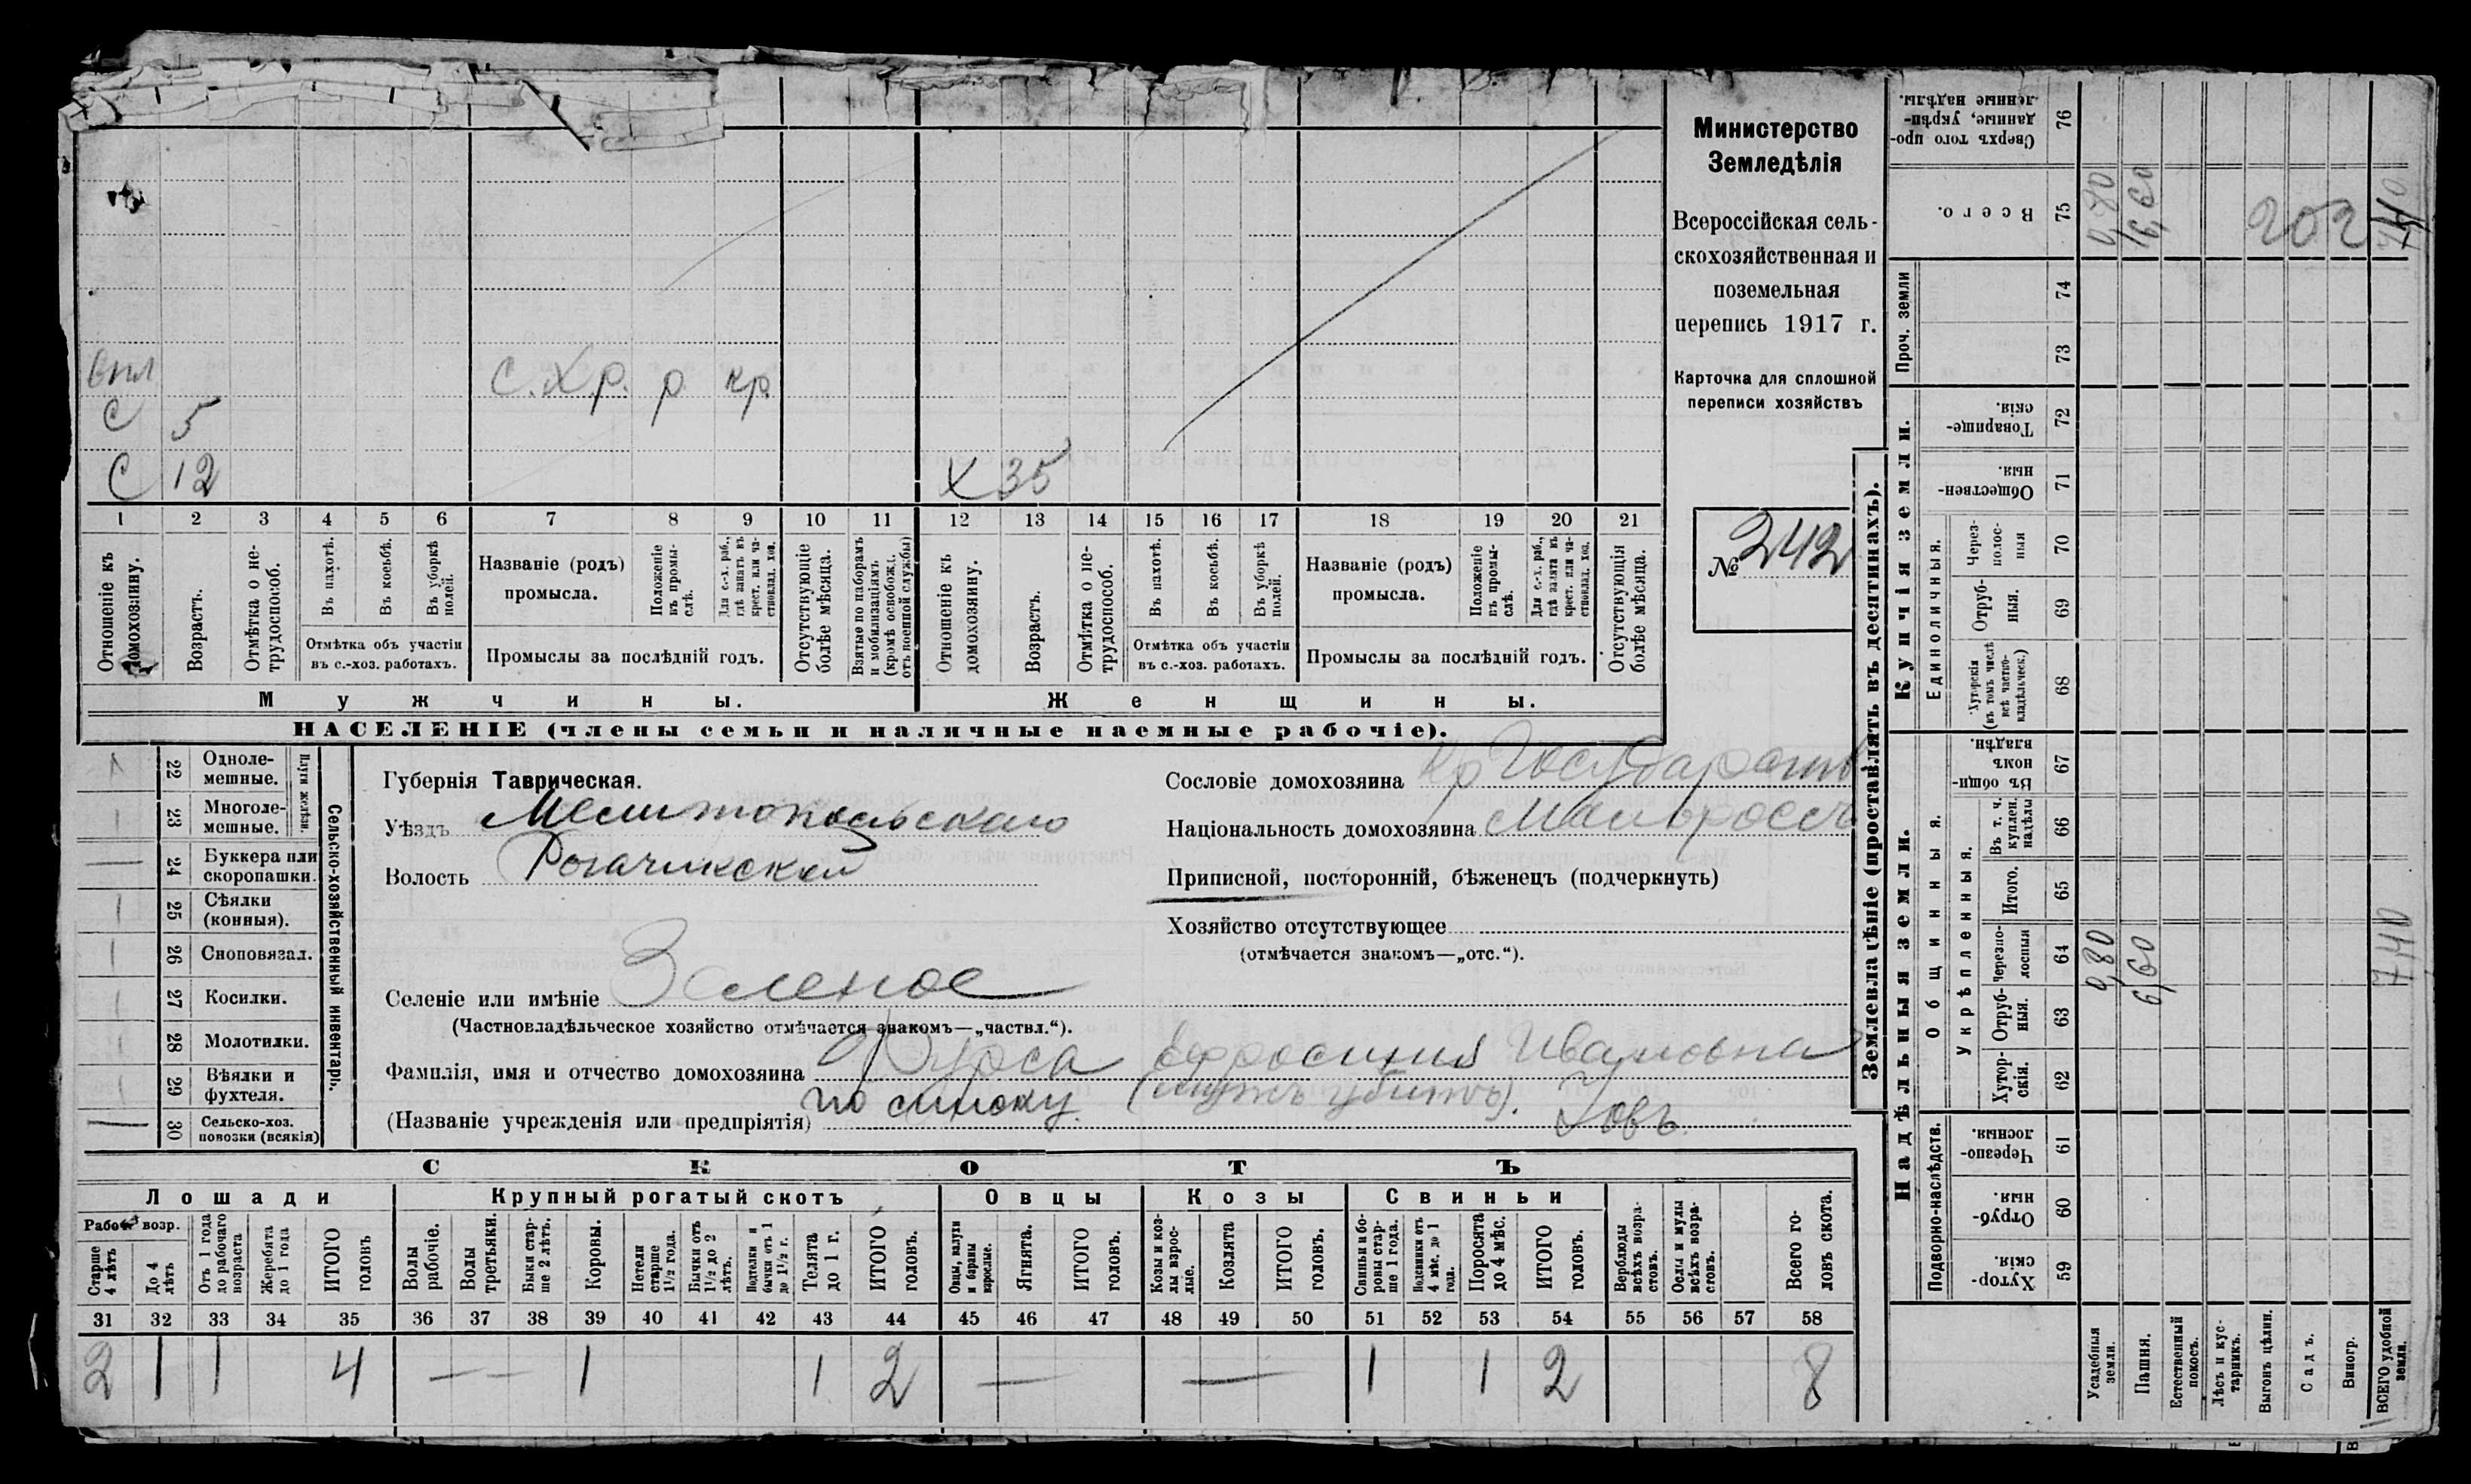 Министерство
Земледѣлія
Всероссійская сель-
скохозяйственная и
поземельная
перепись 1917 г.
Карточка для сплошной
переписи хозяйствъ
№ 242
С.Хр. р кр.
С 5
С 12 Х 35
1 2 3 4 5 6 7 8 9 10 11 12 13 14 15 16 17 18 19 20 21
Отношеніе къ домохозяину.
Возрастъ.
Отмѣтка о не-трудоспособ.
Въ пахотѣ.
Въ косьбѣ.
Въ уборкѣ полей.
Отмѣтка объ участіи
въ с.-хоз. работахъ.
Названіе (родъ)
промысла.
Положеніе въ промы-слѣ.
Для с.-х. раб., гдѣ занятъ въ крест. или ча-стновлад. хоз.
Промыслы за послѣдній годъ.
Отсутствующіе болѣе мѣсяца.
Взятые по наборамъ и мобилизаціямъ (кромѣ освобожд. отъ военной службы)
Отношеніе къ домохозяину.
Возрастъ.
Отмѣтка о не-трудоспособ.
Въ пахотѣ.
Въ косьбѣ.
Въ уборкѣ полей.
Отмѣтка объ участіи
въ с.-хоз. работахъ.
Названіе (родъ)
промысла.
Положеніе въ промы-слѣ.
Для с.-х. раб., гдѣ занята въ крест. или ча-стновлад. хоз.
Промыслы за послѣдній годъ.
Отсутствующія болѣе мѣсяца.
Мужчины. Женщины.
НАСЕЛЕНІЕ (члены семьи и наличные наемные рабочіе).
Сельско-хозяйственный инвентарь.
Плуги желѣзн.
22 Одноле-мешные.
23 Многоле-мешные.
24 Буккера или скоропашки.
25 Сѣялки (конныя).
26 Сноповязал.
27 Косилки.
28 Молотилки.
29 Вѣялки и фухтеля.
30 Сельско-хоз. повозки (всякія)
Губернія Таврическая.
Уѣздъ Мелитопольскаго
Волость Рогачикской
Селеніе или имѣніе Зеленое
(Частновладѣльческое хозяйство отмѣчается знакомъ—„частвл.“).
Фамилія, имя и отчество домохозяина Фурса Ефросинія Ивановна
(Названіе учрежденія или предпріятія) по списку. (мужъ убитъ).
Сословіе домохозяина кр Государств
Національность домохозяина Малоросс
Приписной, посторонній, бѣженецъ (подчеркнуть)
Хозяйство отсутствующее
(отмѣчается знакомъ—„отс.“).
СКОТЪ
Лошади Крупный рогатый скотъ Овцы Козы Свиньи
Рабоч. возр.
Старше 4 лѣтъ
До 4 лѣтъ
Отъ 1 года до рабочаго возраста
Жеребята до 1 года
ИТОГО головъ
Волы рабочіе.
Волы третьяки.
Быки стар-ше 2 лѣтъ.
Коровы.
Нетели старше 1½ года.
Бычки отъ 1½ до 2 лѣтъ.
Подтелки и бычки отъ 1 до 1½ г.
Телята до 1 г.
ИТОГО головъ.
Овцы, валухи и бараны взрослые.
Ягнята.
ИТОГО головъ.
Козы и коз-лы взрос-лые.
Козлята
ИТОГО головъ.
Свиньи и бо-ровы стар-ше 1 года.
Подсвинки отъ 4 мѣс. до 1 года.
Поросята до 4 мѣс.
ИТОГО головъ.
Верблюды всѣхъ возра-стовъ.
Ослы и мулы всѣхъ возра-стовъ.
Всего го-ловъ скота.
31 32 33 34 35 36 37 38 39 40 41 42 43 44 45 46 47 48 49 50 51 52 53 54 55 56 57 58
2 1 1 4 — — 1 1 2 — — 1 1 2 8
Землевладѣніе (проставлять въ десятинахъ).
Надѣльныя земли. Купчія земли. Проч. земли
Подворно-наслѣдств.
Общинныя.
Укрѣпленныя.
Единоличныя.
59 Хутор-скія.
60 Отруб-ныя.
61 Черезпо-лосныя.
62 Хутор-скія.
63 Отруб-ныя.
64 Черезпо-лосныя
65 Итого.
66 Въ т. ч. куплен. надѣлы
67 Въ общи-номъ владѣн.
68 Хуторскія (въ томъ числѣ всѣ частно-владѣльческ.)
69 Отруб-ныя.
70 Через-полос-ныя
71 Обществен-ныя.
72 Товарище-скія.
73
74
75 Всего.
76 Сверхъ того про-данные, укрѣп-ленные надѣлы.
Усадебныя земли.
Пашня.
Естественный покосъ.
Лѣсъ и кус-тарникъ.
Выгонъ цѣлин.
Садъ.
Виногр.
ВСЕГО удобной земли.
0,80 6,60 7,40
0,80 6,60 202 7,40